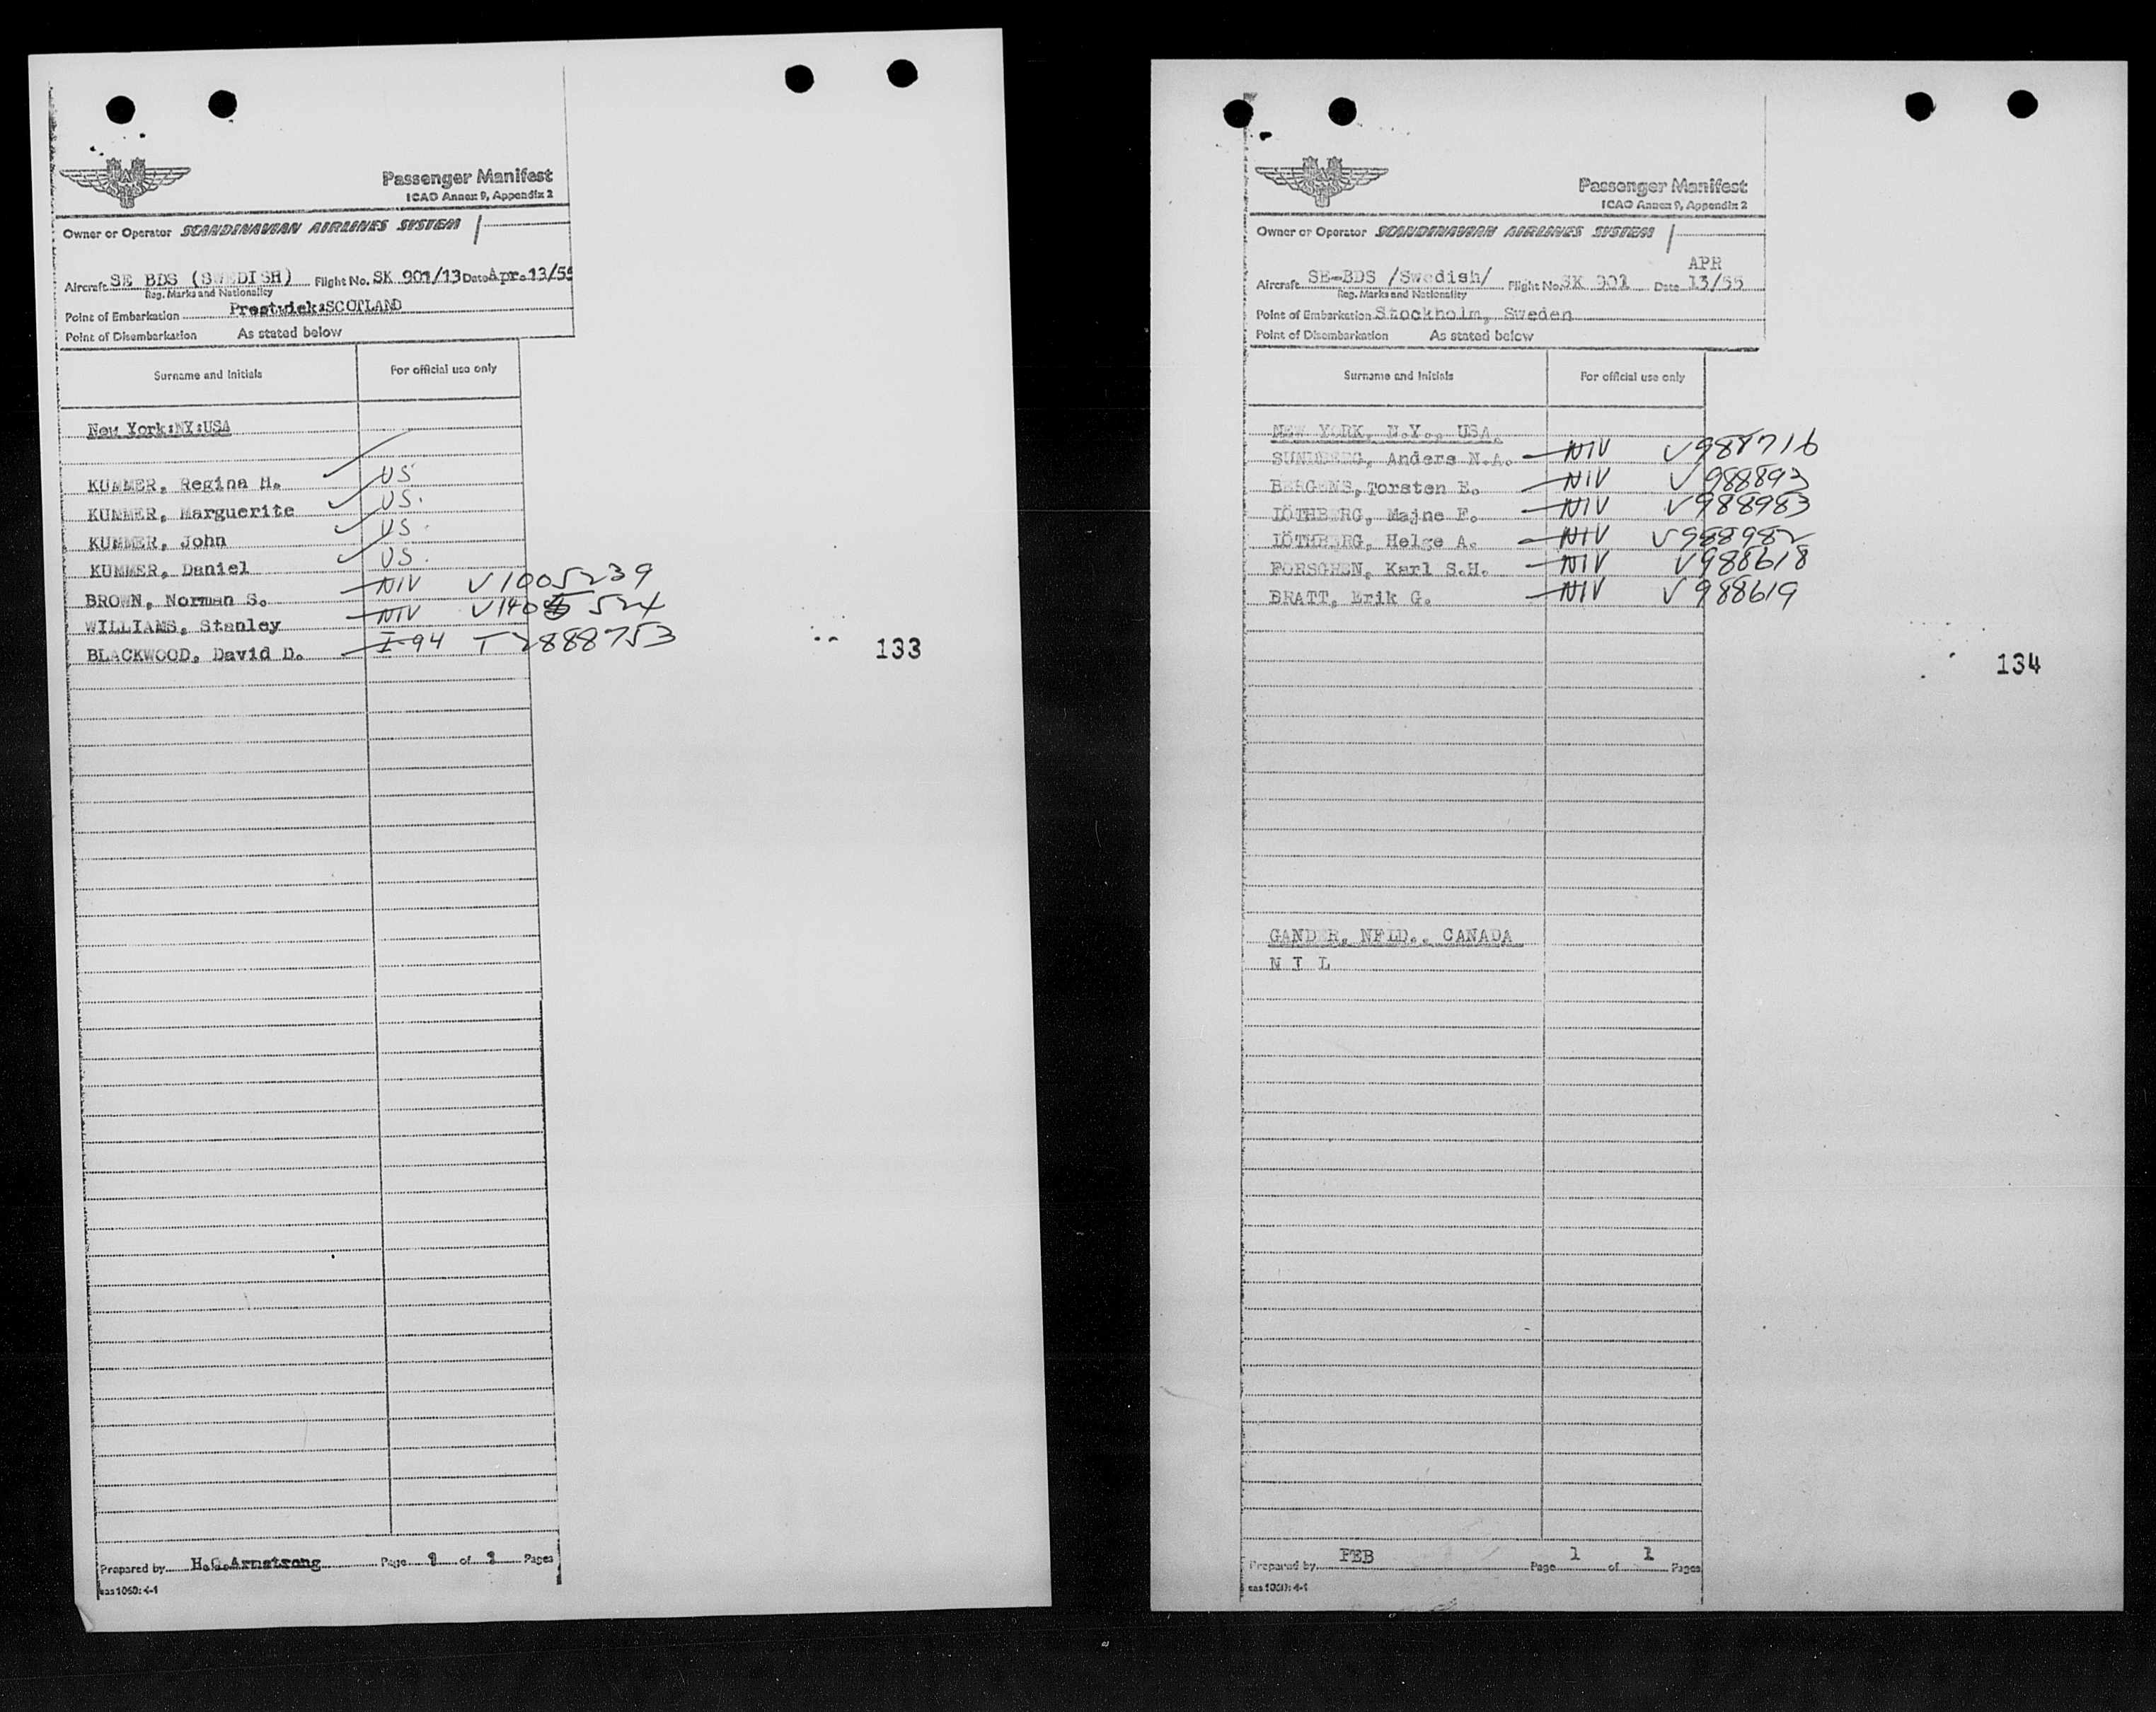 Passenger Manifest
ICAO Annex 9, Appendix 2
Owner or Operator SCANDINAVIAN AIRLINES SYSTEM
Aircraft SE BDS (SWEDISH) Flight No. SK 901/13 Date Apr.13/55
Reg. Marks and Nationality
Point of Embarkation Prestwick:SCOTLAND
Point of Disembarkation As stated below
Surname and Initials For official use only
New York:NY:USA
KUMMER, Regina H. US
KUMMER, Marguerite US.
KUMMER, John US.
KUMMER, Daniel US.
BROWN, Norman S. NIV V1005239
WILLIAMS, Stanley NIV
BLACKWOOD, David D. I-94 T 2888753
133
Prepared by H.G.Armstrong Page 1 of 1 Pages
sas 1060: 4-1
Passenger Manifest
ICAO Annex 9, Appendix 2
Owner or Operator SCANDINAVIAN AIRLINES SYSTEM
Aircraft SE-BDS /Swedish/ Flight No. SK 901 Date APR 13/55
Reg. Marks and Nationality
Point of Embarkation Stockholm, Sweden
Point of Disembarkation As stated below
Surname and Initials For official use only
NEW YORK, N.Y., USA.
SUNDBERG, Anders N.A. NIV V988716
BERGENS, Torsten E. NIV V988893
LÖTHBERG, Majne F. NIV V988983
LÖTHBERG, Helge A. NIV V988982
FORSGREN, Karl S.H. NIV V988618
BRATT, Erik G. NIV V988619
134
GANDER, NFLD., CANADA
N I L
Prepared by PEB Page 1 of 1 Pages
sas 1060: 4-1